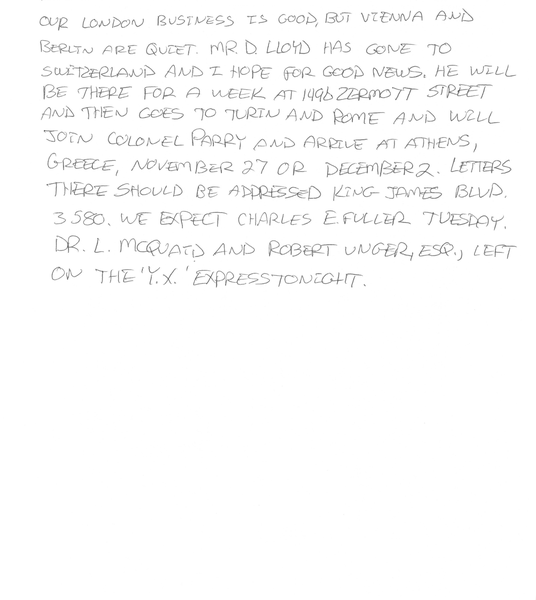 OUR LONDON BUSINESS IS GOOD, BUT VIENNA AND
BERLIN ARE QUIET. MR. D. LLOYD HAS GONE TO
SWITZERLAND AND I HOPE FOR GOOD NEWS. HE WILL
BE THERE FOR A WEEK AT 1496 ZERMOTT STREET
AND THEN GOES TO TURIN AND ROME AND WILL
JOIN COLONEL PARRY AND ARRIVE AT ATHENS,
GREECE, NOVEMBER 27 OR DECEMBER 2. LETTERS
THERE SHOULD BE ADDRESSED KING JAMES BLVD.
3580. WE EXPECT CHARLES E. FULLER TUESDAY.
DR. L. MCQUAID AND ROBERT UNGER, ESQ., LEFT
ON THE 'Y.X.' EXPRESS TONIGHT.